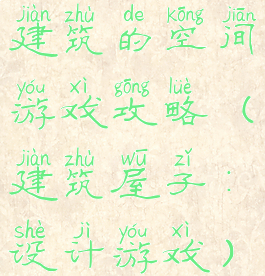 jiàn zhù de kōng jiān
建筑的空间
yóu xì gōng lüè
游戏攻略（
jiàn zhù wū zǐ
建筑屋子：
shè jì yóu xì
设计游戏）